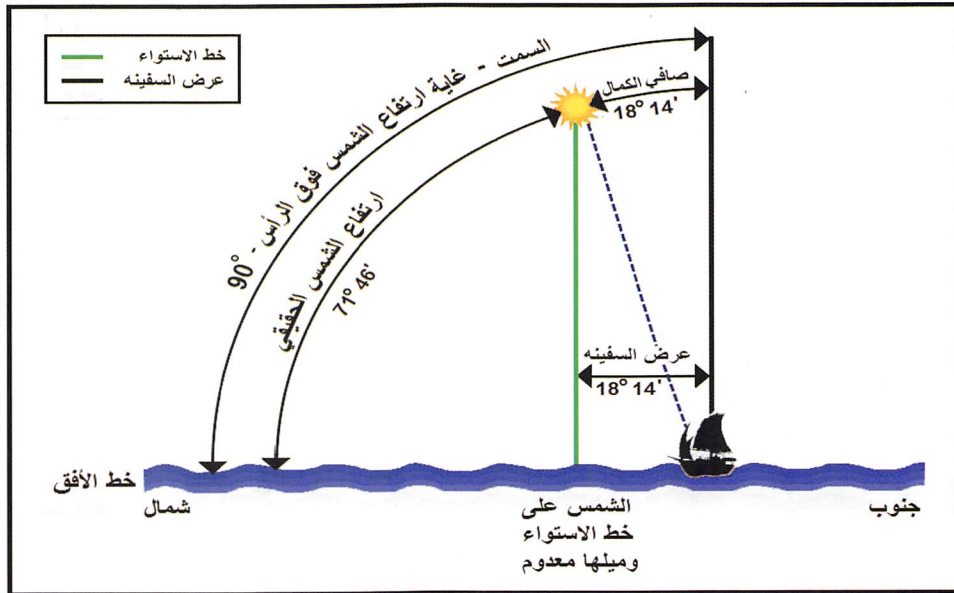 خط الاستواء
عرض السفينه
السمت - غاية ارتفاع الشمس فوق الرأس - 90°
صافي الكمال
18° 14'
ارتفاع الشمس الحقيقي
71° 46'
عرض السفينه
18° 14'
خط الأفق
شمال
الشمس على
خط الاستواء
وميلها معدوم
جنوب